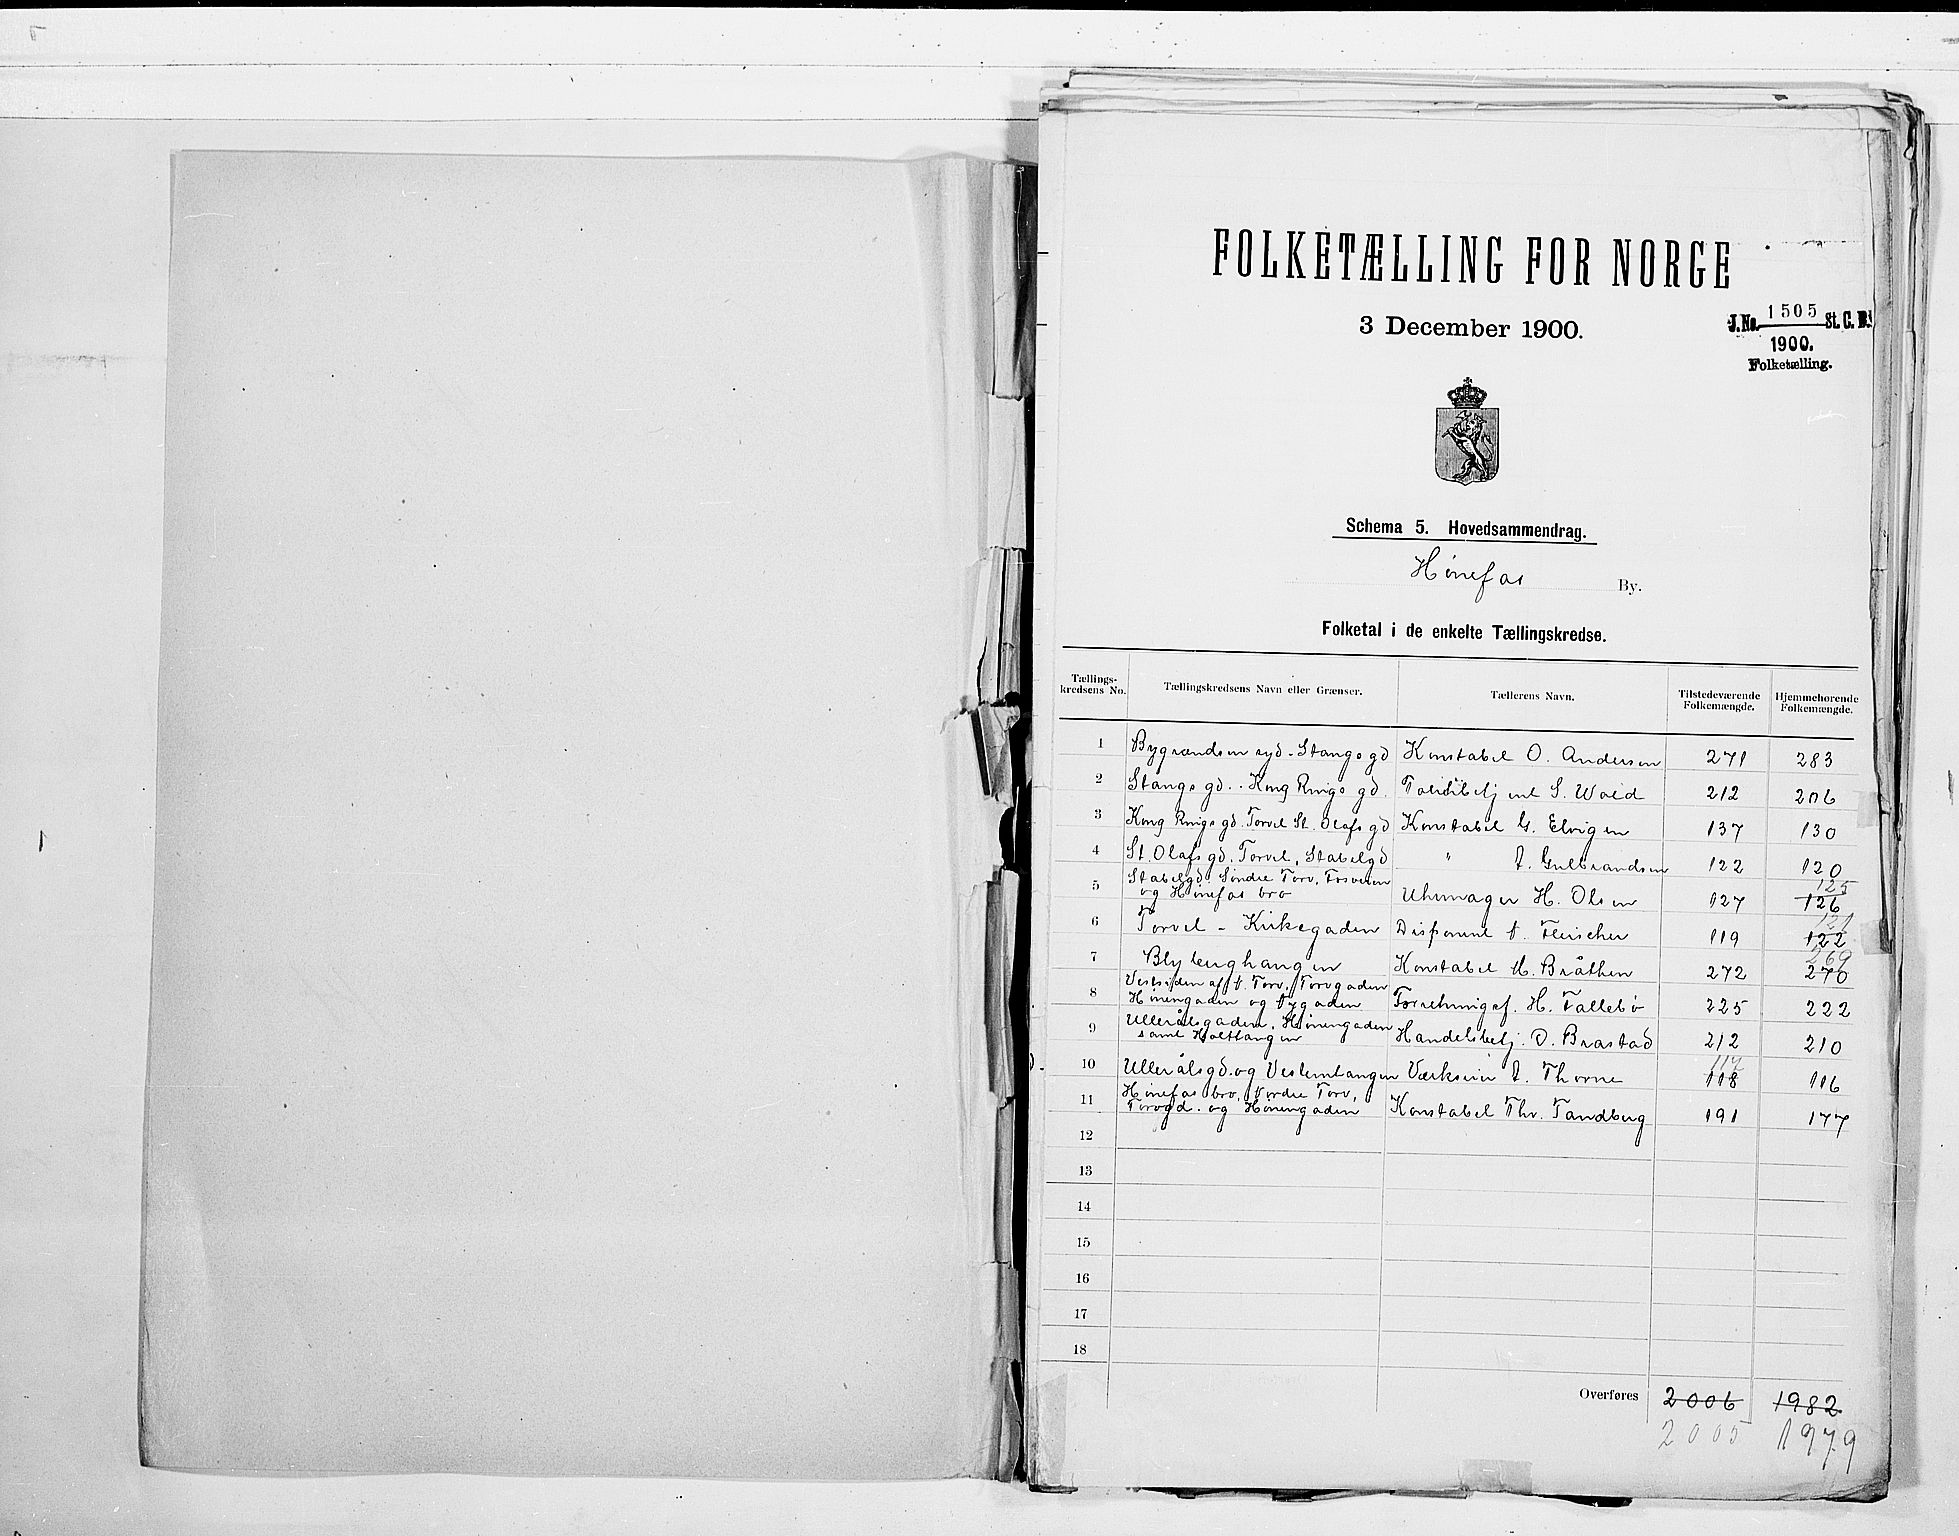 FOLKETÆLLING FOR NORGE
3 December 1900.
J.No. 1505 St. C. B.
1900.
Folketælling.
Schema 5. Hovedsammendrag.
Hönefos By.
Folketal i de enkelte Tællingskredse.
Tællings-kredsens No. Tællingskredsens Navn eller Grænser. Tællerens Navn. Tilstedeværende Folkemængde. Hjemmehørende Folkemængde.
1 Bygrændsen syd - Stangs gd Konstabel O. Andersen 271 283
2 Stangs gd. - Kong Rings gd. S. Wold 212 206
3 Kong Rings gd. Torvet St. Olafs gd Konstabel G. Elvigen 137 130
4 St. Olafs gd. Torvet, Stabelgd " Gulbrandsen 122 120
125
5 Stabelgd. Söndre Torv, Fosveien
og Hönefos bro Uhrmager H. Olsen 127 126
121
6 Torvet - Kirkegaden Disponent Fleischer 119 122
269
7 Blyberghaugen Konstabel M. Bråthen 272 270
8 Vestsiden af N. Torv, Torvgaden
Hönengaden og Nygaden Forretningsf. H. Tallebö 225 222
9 Ullerålsgaden, Hönengaden
samt Holttangen Handelsbetj. O. Brastad 212 210
117
10 Ullerålsgd. og Vesterntangen Værkseier Thorne 118 116
11 Hönefos bro, Nordre Torv,
Torvgd. og Hönengaden Konstabel Thv. Tandberg 191 177
12
13
14
15
16
17
18
Overføres 2006 1982
2005 1979